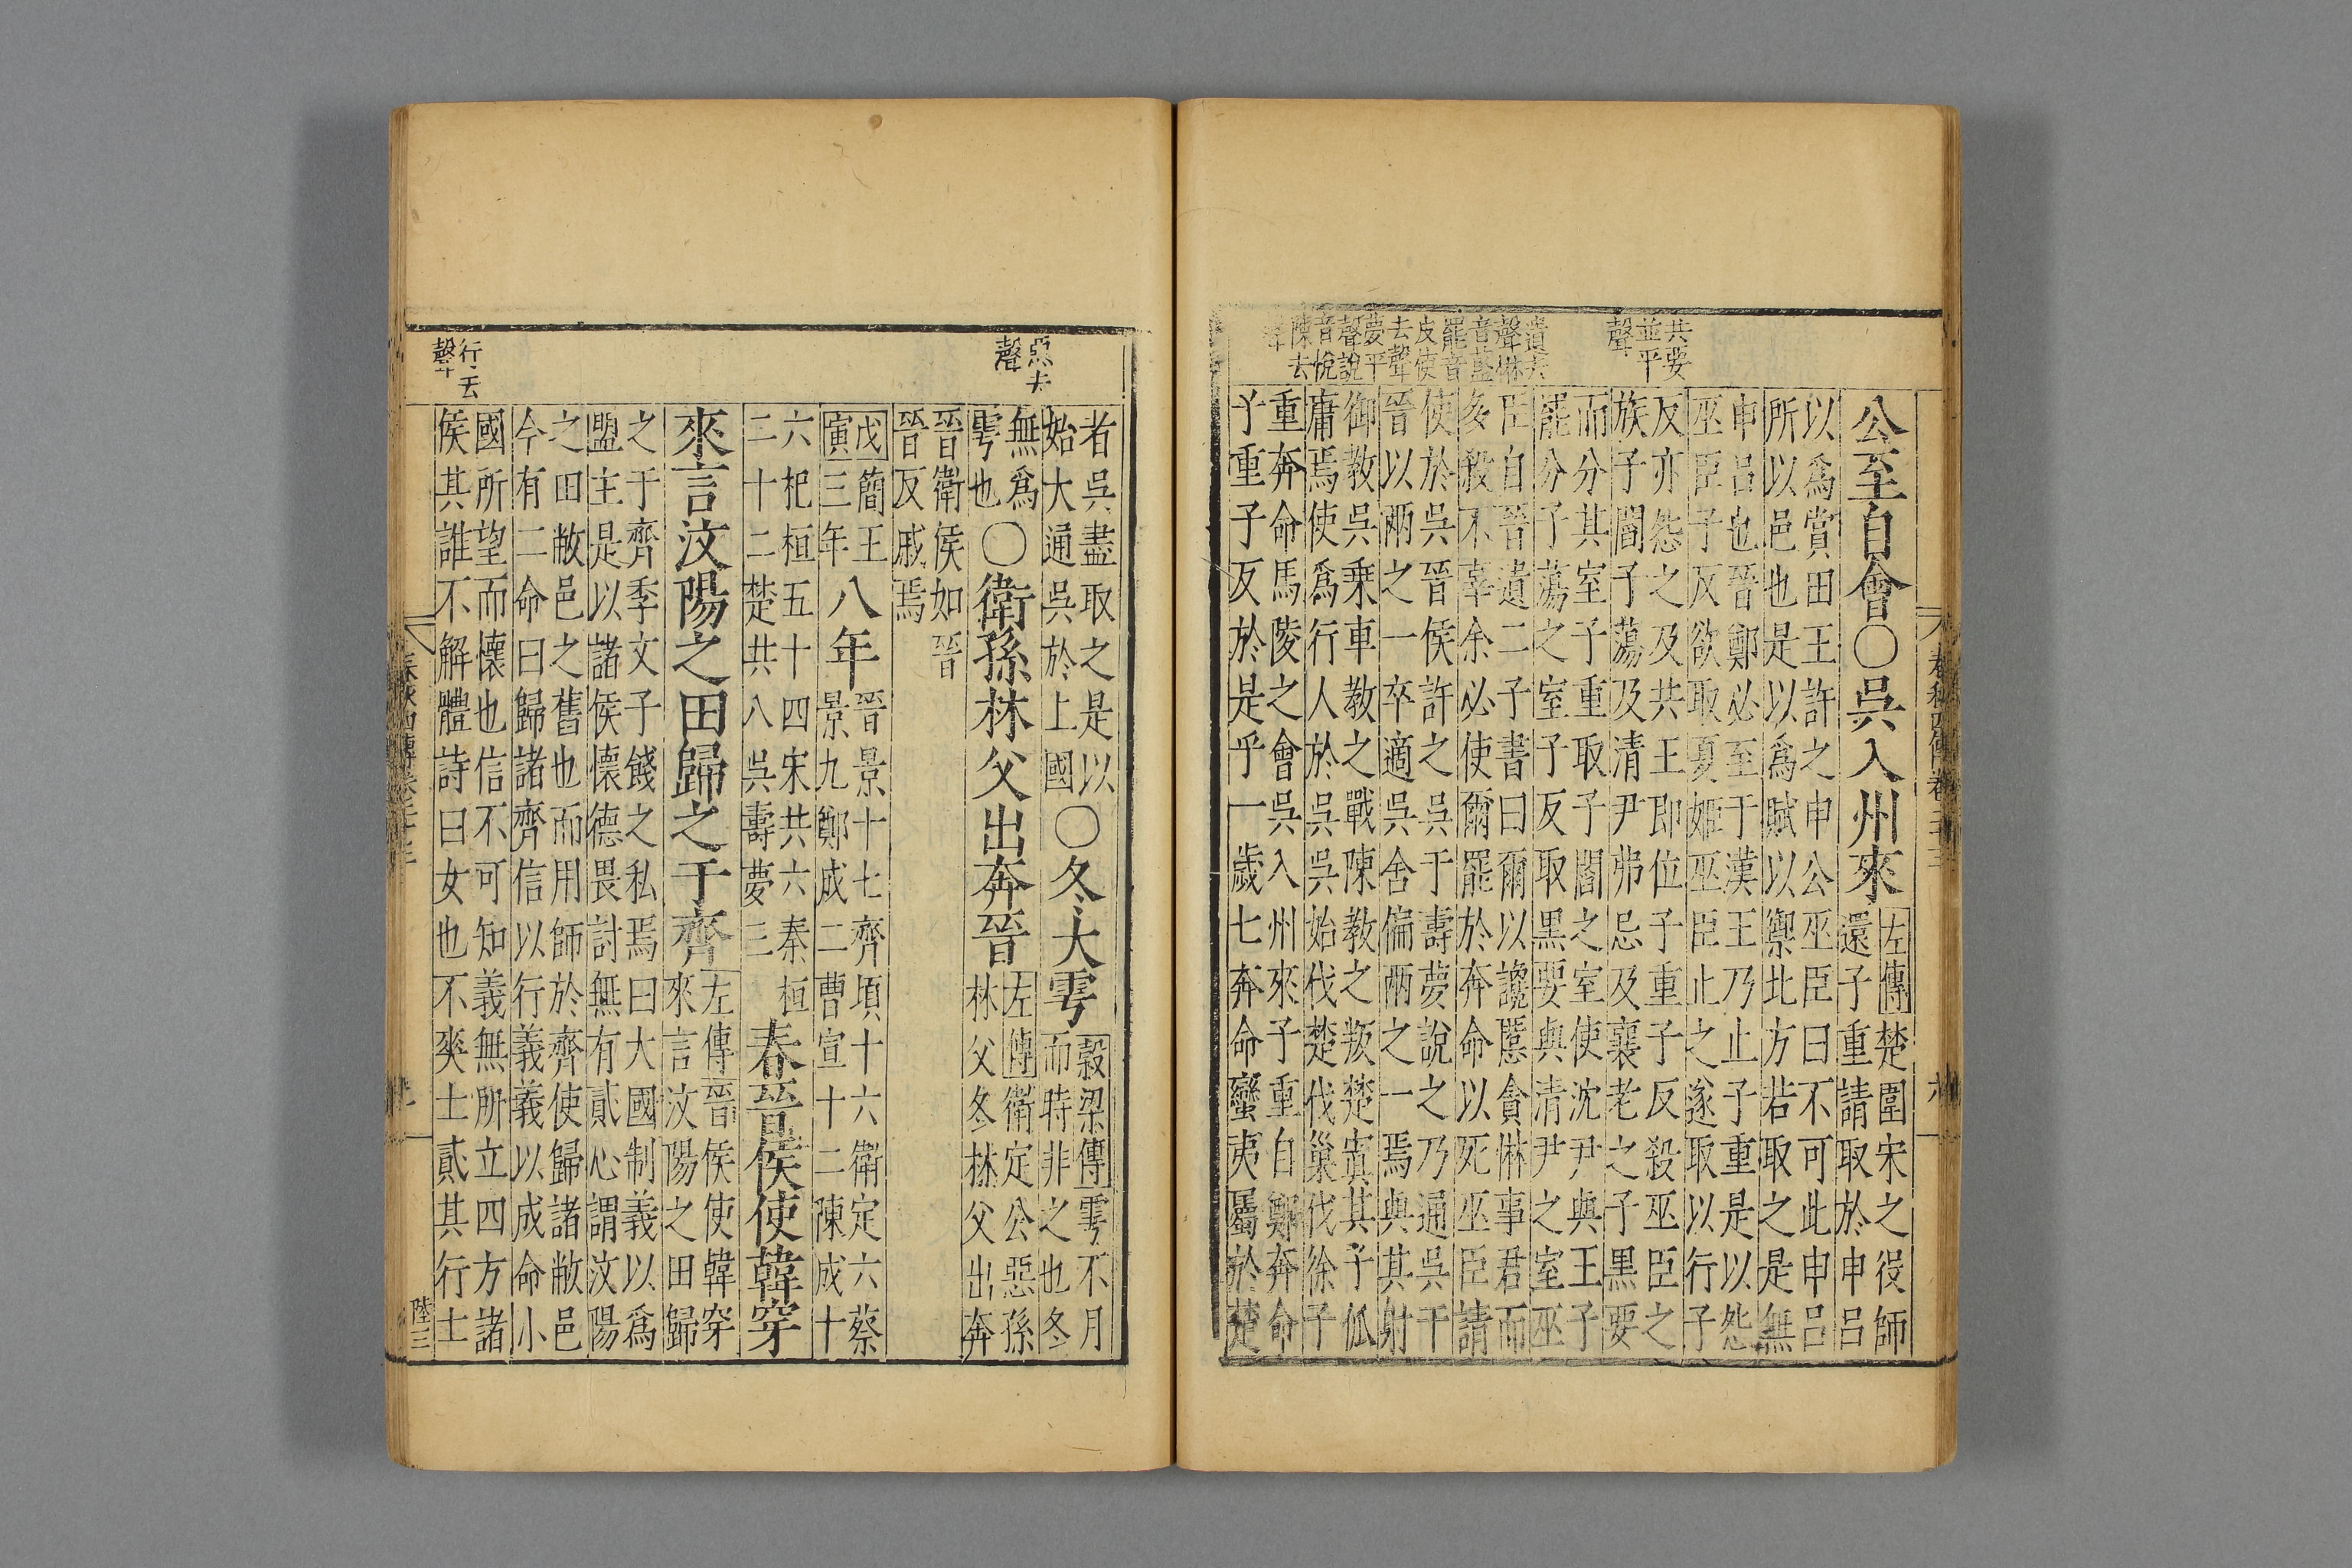 共要
並平
聲
遺去
聲惏
音藍
罷音
皮使
去聲
夢平
聲說
音悅
陳去
聲
公至自會〇吳入州來
左傳楚圍宋之役師
還子重請取於申呂
以爲賞田王許之申公巫臣曰不可此申呂
所以邑也是以爲賦以禦北方若取之是無
申呂也晉鄭必至于漢王乃止子重是以怨
巫臣子反欲取夏姬巫臣止之遂取以行子
反亦怨之及共王即位子重子反殺巫臣之
族子閻子蕩及清尹弗忌及襄老之子黑要
而分其室子重取子閻之室使沈尹與王子
罷分子蕩之室子反取黑要與清尹之室巫
臣自晉遺二子書曰爾以讒慝貪惏事君而
多殺不辜余必使爾罷於奔命以死巫臣請
使於吳晉侯許之吳子壽夢說之乃通吳于
晉以兩之一卒適吳舍偏兩之一焉與其射
御教吳乘車教之戰陳教之叛楚寘其子狐
庸焉使爲行人於吳吳始伐楚伐巢伐徐子
重奔命馬陵之會吳入州來子重自鄭奔命
子重子反於是乎一歲七奔命蠻夷屬於楚
惡去
聲
者吳盡取之是以
始大通吳於上國
〇冬大雩
穀梁傳雩不月
而時非之也冬
無爲
雩也
〇衛孫林父出奔晉
左傳衛定公惡孫
林父冬孫林父出奔
晉衛侯如晉
晉反戚焉
戊寅
簡王
三年
八年
晉景十七齊頃十六衛定六蔡
景九鄭成二曹宣十二陳成十
六杞桓五十四宋共六秦桓
二十二楚共八吳壽夢三
春晉侯使韓穿
來言汶陽之田歸之于齊
左傳晉侯使韓穿
來言汶陽之田歸
之于齊季文子餞之私焉曰大國制義以爲
盟主是以諸侯懷德畏討無有貳心謂汶陽
之田敝邑之舊也而用師於齊使歸諸敝邑
今有二命曰歸諸齊信以行義義以成命小
國所望而懷也信不可知義無所立四方諸
侯其誰不解體詩曰女也不爽士貳其行士
行去
聲
陸三